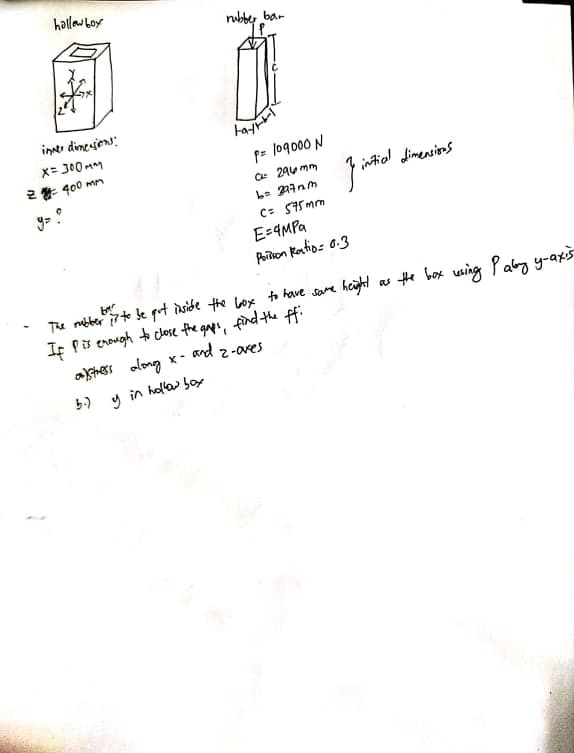 hollow box
rubber bar
P
c
y
x
z
a
b
inner dimensions:
x= 300 mm
z = 400 mm
y= ?
P= 109000 N
a= 296 mm
b= 397 mm
c= 575 mm
} initial dimensions
E=4MPa
Poisson Ratio= 0.3
- The rubber bar is to be put inside the box to have same height as the box using P along y-axis
If P is enough to close the gaps, find the ff:
a.) stress along x- and z-axes
b.) y in hollow box